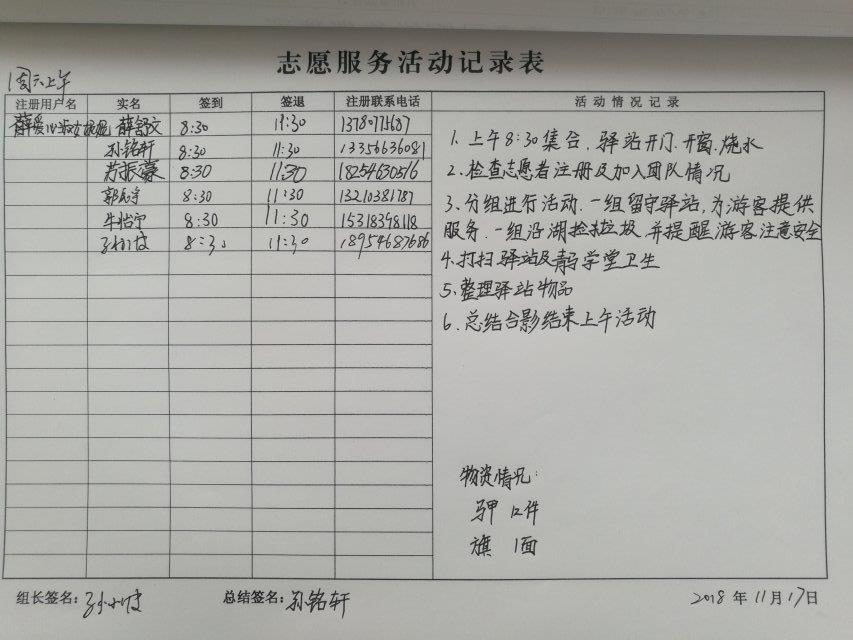 志愿服务活动记录表
周六上午
注册用户名 实名 签到 签退 注册联系电话 活动情况记录
薛舒文 8:30 11:30 13780775687
孙铭轩 8:30 11:30 13356636081
振豪 8:30 11:30 18254630516
8:30 11:30 13210381787
牛怡宁 8:30 11:30 15318398118
8:30 11:30 18954687686
1. 上午8:30集合、驿站开门、开窗、烧水
2. 检查志愿者注册及加入团队情况
3. 分组进行活动.一组留守驿站,为游客提供
服务.一组沿湖捡垃圾,并提醒游客注意安全
4. 打扫驿站及青鸟学堂卫生
5. 整理驿站物品
6. 总结合影结束上午活动
物资情况:
马甲 12件
旗 1面
组长签名: 总结签名: 孙铭轩 2018 年 11 月 17 日